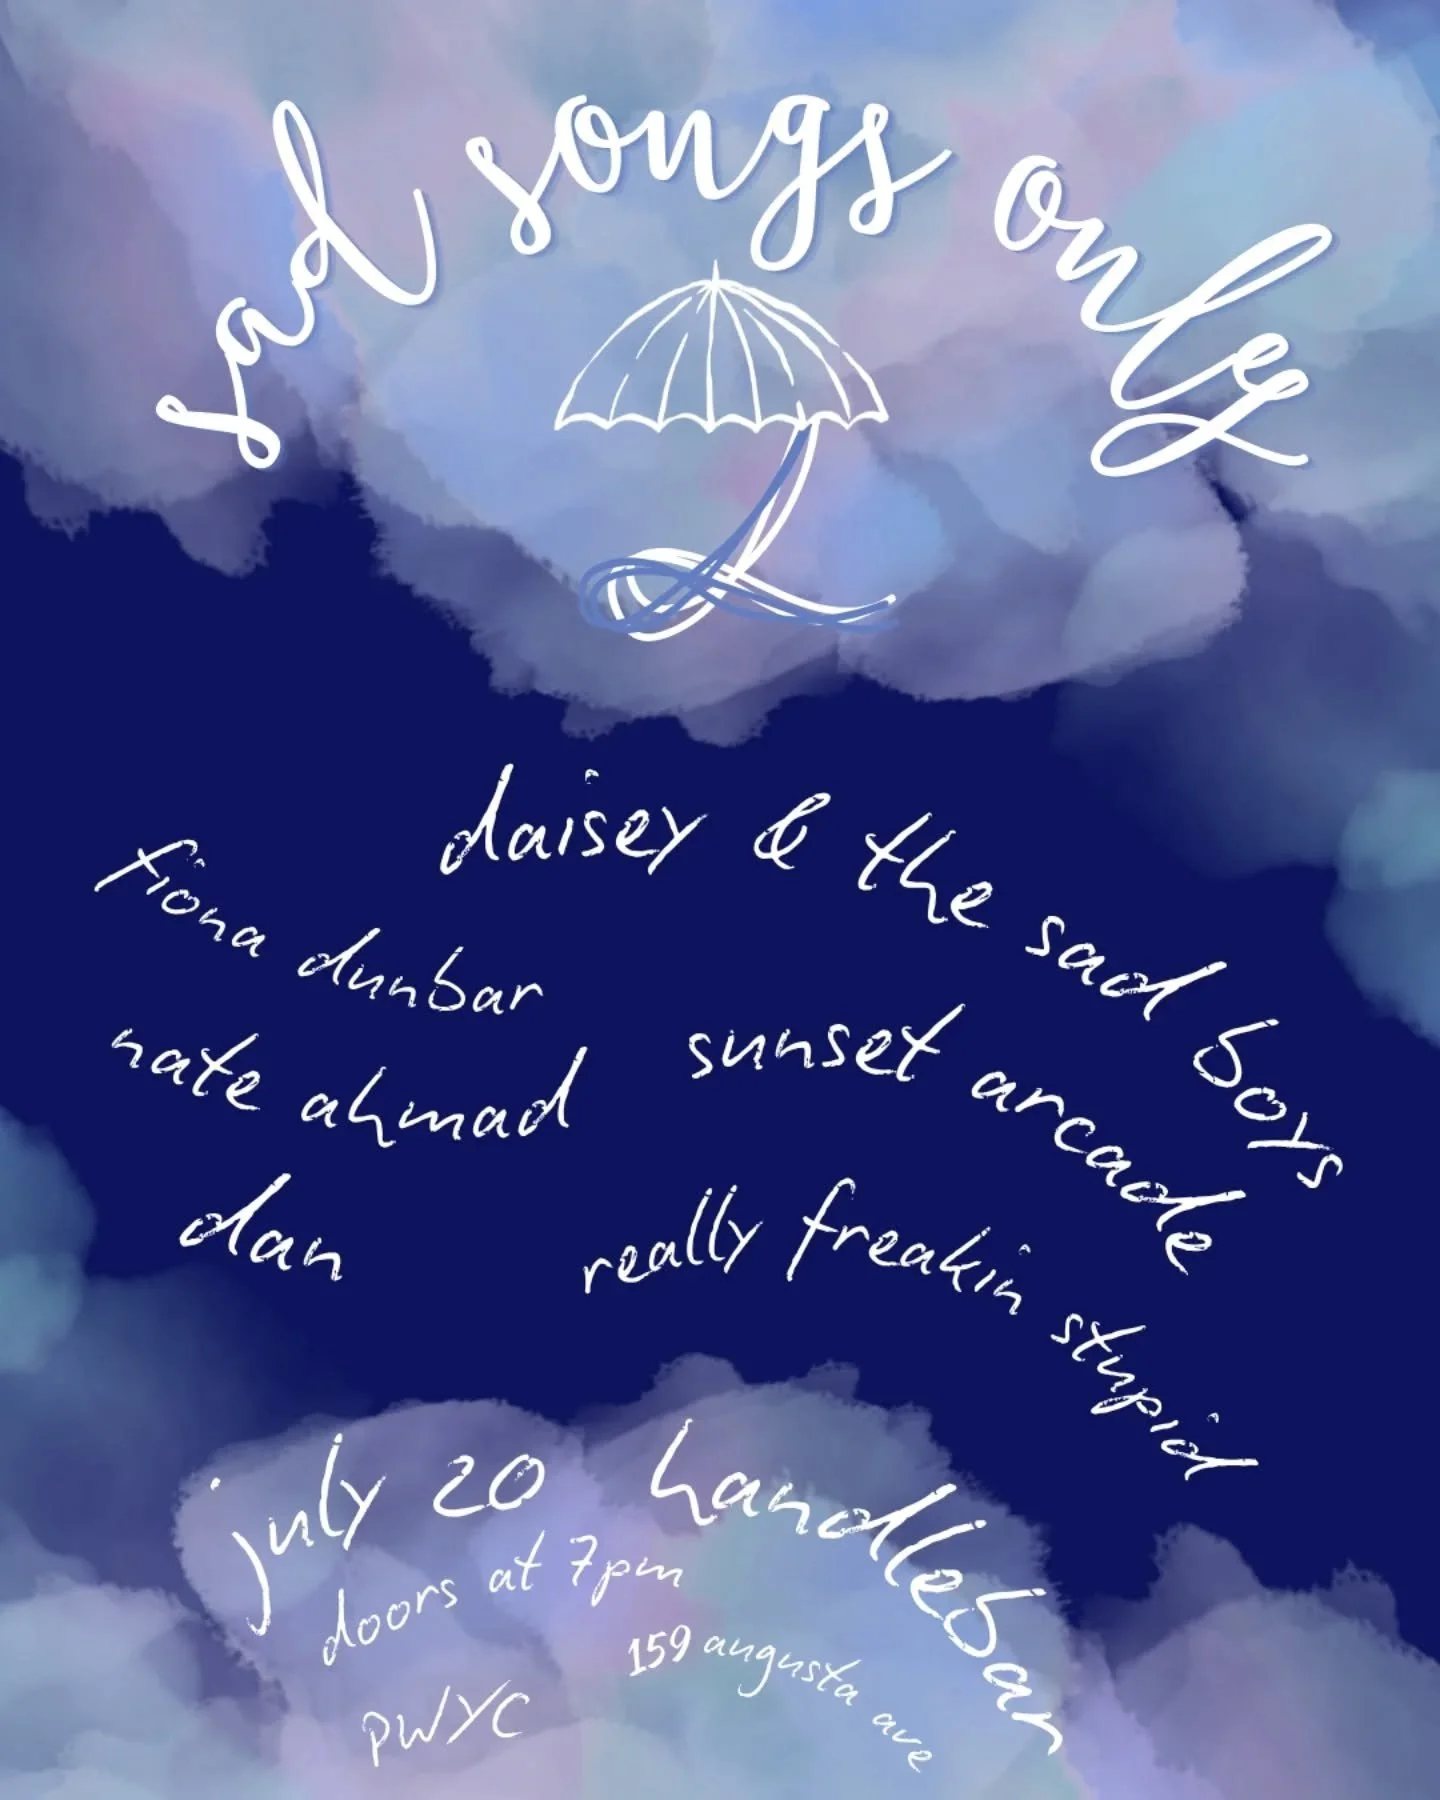 sad songs only
daisey & the sad boys
fiona dunbar
sunset arcade
nate ahmad
really freakin stupid
dan
july 20
doors at 7pm
PWYC
handlebar
159 augusta ave